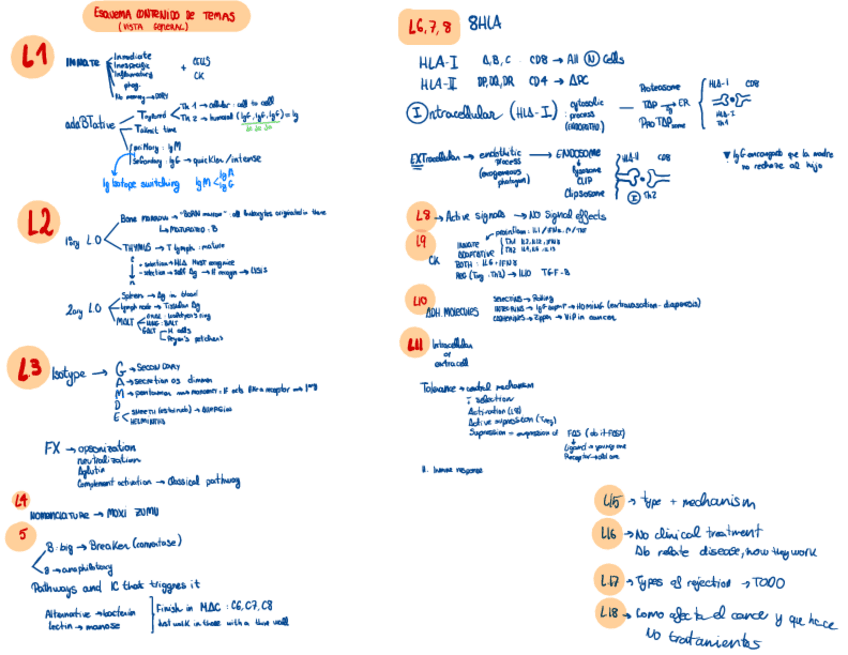 ESQUEMA CONTENIDO DE TEMAS
(VISTA GENERAL)
L1
INNATE
Inmediate
Inespecific
Inflammatory
phag.
No memory → DIRY
+ CK
adaBTative
Thymus
Th 1 → cellular: cell to cell
Th 2 → humoral (IgG, IgG, IgG) = Ig
Takes time
primary: IgM
Secondary: IgG → quicker/intense
Ig Isotope switching IgM
IgA
IgG
L2
1ary L.O
Bone marrow → "BORN marrow": all leukocytes originated in there
↳ MATURATION: B
THYMUS → T lymph: mature
+ selection → HLA MUST recognize
- selection → self Ag → if recogn → LYSIS
2ary L.O
Spleen → Ag in blood
Lymph node → Tissular Ag
MALT
ORAL: Waldeyer's ring
LUNG: BALT
GALT
M cells
Peyer's patches
L3
Isotype → G → SECONDARY
A → secretion as dimer
M → pentamer
D
E
HELMINTHS
FX → opsonization
neutralization
Aglutin
Complement activation → Classical pathway
L4
NOMENCLATURE → MOXI ZUMU
5
B: big → Breaker (convertase)
Pathways and IC that triggres it
Alternative → bacteria
lectin → manose
Finish in MAC: C6, C7, C8
Just walk in those with a thin wall
L6, 7, 8 8HLA
HLA-I A, B, C CD8 → All N Cells
HLA-II DP, DQ, DR CD4 → APC
Intracellular (HLA-I)
cytosolic
process
— Proteasome
TAP → ER
HLA-I CD8
HLA-I
Th1
EXTracellular → endocitic
process
(exogenous
→ ENDOSOME
lysosome
CLIP
Clipsosome
HLA-II CD8
I Th2
▼ IgG encargado que la madre
no rechaze al hijo
L8 → Active signals → NO Signal effects
L9
CK
INNATE
ADAPTATIVE
BOTH: IL6 + IFN8
REG (Treg: Th2) → IL10 TGF-B
L10
ADH. MOLECULES
SELECTINS → Rolling
INTEGRINS → IgSuperF → HOMING (extravasation - diapedesis)
CADHERINS → Zipper → VIP in cancer
L11
Intracellular
or
extracell
Tolerance → control mechanism
T selection
Activation (L8)
Active supression (Treg)
Supression = expression of FAS (do it FAST)
Ligand → young one
Receptor → old one
H. Inmune response
L15 → type + mechanism
L16 → No clinical treatment
Ab relate disease, how they work
L17 → Types of rejection → TODO
L18 → Como afecta el cancer y que hace
No tratamientos